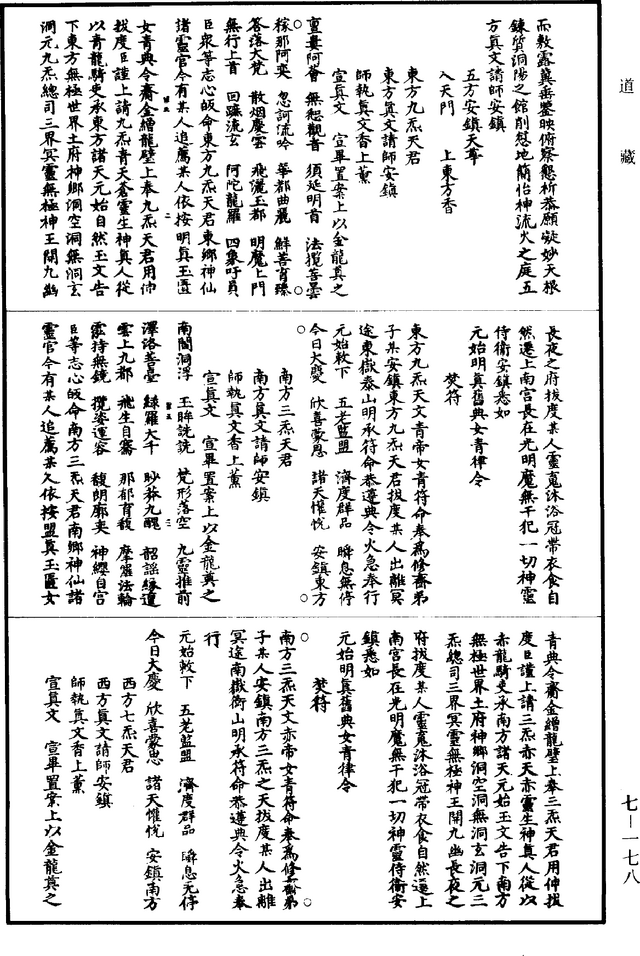 道藏
而敷露真垂鑒映俯察懇祈恭願凝妙天根
鍊質洞陽之館削愆地簡怡神流火之庭五
方真文請師安鎮
五方安鎮天尊
入天門　上東方香
東方九炁天君
東方真文請師安鎮
師執真文香上薰
宣真文　宣畢置案上以金龍奠之
亶婁阿薈　無惒觀音　須延明首　法攬菩曇
稼那阿奕　忽訶流吟　華都曲麗　鮮菩育臻
答落大梵　散烟慶雲　飛灑玉都　明魔上門
無行上首　回蹠流玄　阿陀龍羅　四象吁員
臣衆等志心皈命東方九炁天君東鄉神仙
諸靈官今有某人追薦某人依按明真玉匱
女青典令齋金繒龍璧上奉九炁天君用伸
拔度臣謹上請九炁青天蒼靈生神真人從
以青龍騎吏承東方諸天元始自然玉文告
下東方無極世界土府神鄉洞空洞無洞玄
洞元九炁總司三界冥靈無極神王開九幽
長夜之府拔度某人靈寬沐浴冠帶衣食自
然遷上南宮長在光明魔無干犯一切神靈
侍衛安鎮悉如
元始明真舊典女青律令
焚符
東方九炁天文青帝女青符命奉為修齋弟
子某安鎮東方九炁天君拔度某人出離冥
途東嶽泰山明承符命恭遵典令火急奉行
元始敕下　五老監盟　濟度群品　瞬息無停
今日大慶　欣喜蒙恩　諸天懽悅　安鎮東方
南方三炁天君
南方真文請師安鎮
師執真文香上薰
宣真文　宣畢置案上以金龍奠之
南閻洞浮　玉眸詵詵　梵形落空　九靈推前
澤洛菩臺　綠羅大千　眇莽九醜　韶謠緣邅
雲上九都　飛生自騫　那郁育馥　摩羅法輪
霐持無鏡　攬姿運容　馥朗廓奕　神纓自宮
臣等志心皈命南方三炁天君南鄉神仙諸
靈官今有某人追薦某人依按盟真玉匱女
青典令齋金繒龍璧上奉三炁天君用伸拔
度臣謹上請三炁赤天赤靈生神真人從以
赤龍騎吏承南方諸天元始玉文告下南方
無極世界土府神鄉洞空洞無洞玄洞元三
炁總司三界冥靈無極神王開九幽長夜之
府拔度某人靈寬沐浴冠帶衣食自然遷上
南宮長在光明魔無干犯一切神靈侍衛安
鎮悉如
元始明真舊典女青律令
焚符
南方三炁天文赤帝女青符命奉為修齋弟
子某人安鎮南方三炁之天拔度某人出離
冥途南嶽衡山明承符命恭遵典令火急奉
行
元始敕下　五老監盟　濟度群品　瞬息无停
今日大慶　欣喜蒙恩　諸天懽悅　安鎮南方
西方七炁天君
西方真文請師安鎮
師執真文香上薰
宣真文　宣畢置案上以金龍奠之
七—一七八